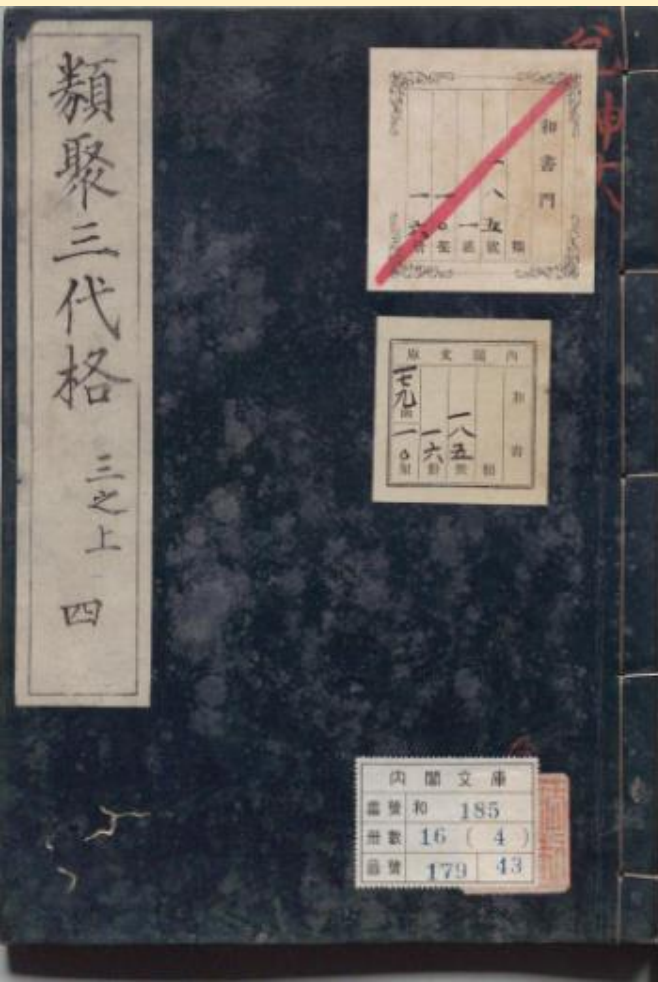 類聚三代格 三之上 四
和書門
類
一八五號
一
一〇
一六
內閣文庫
和書
類
一八五號
一六冊
一七九函
一〇架
內閣文庫
番號 和 185
冊數 16 ( 4 )
函號 179 43